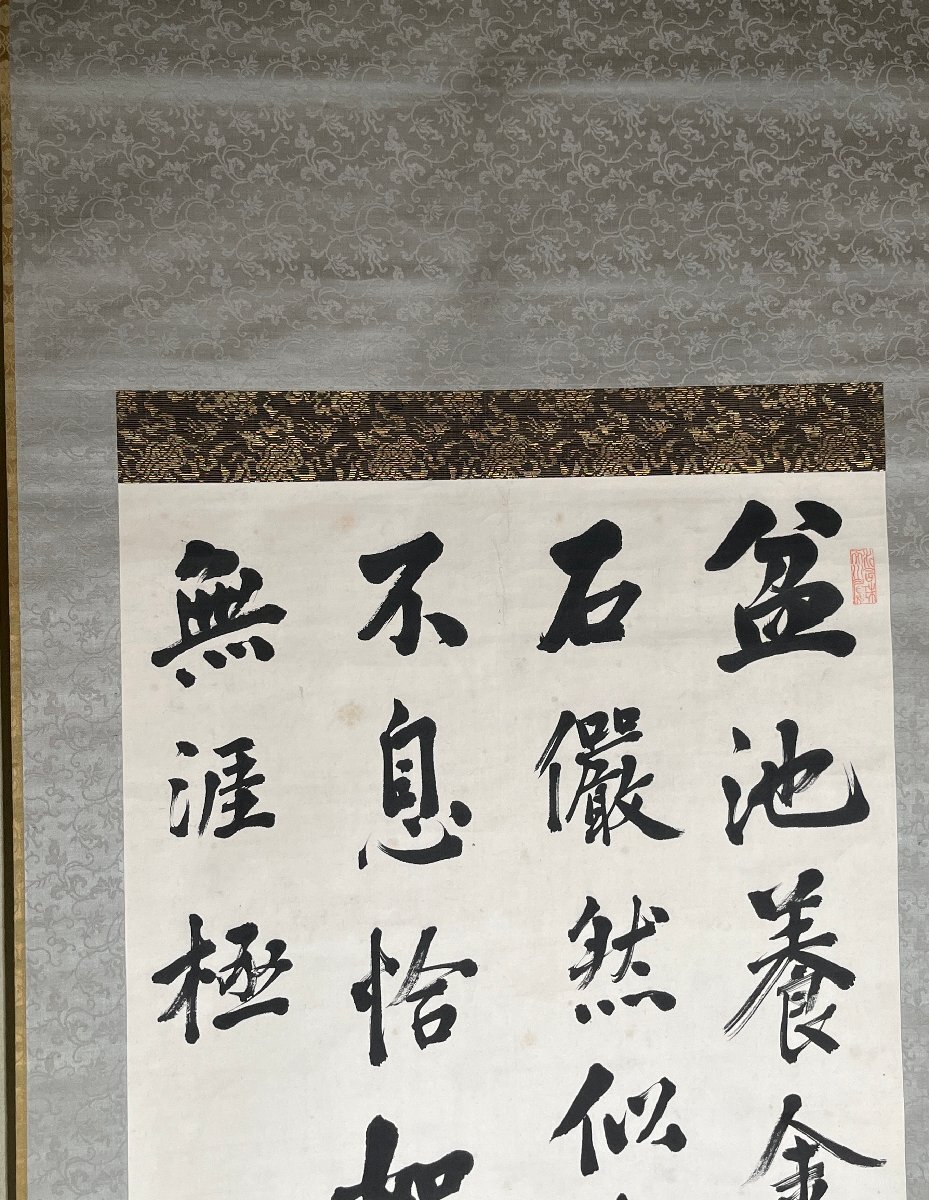 盆池養金
石儼然似
不息恰如
無涯極